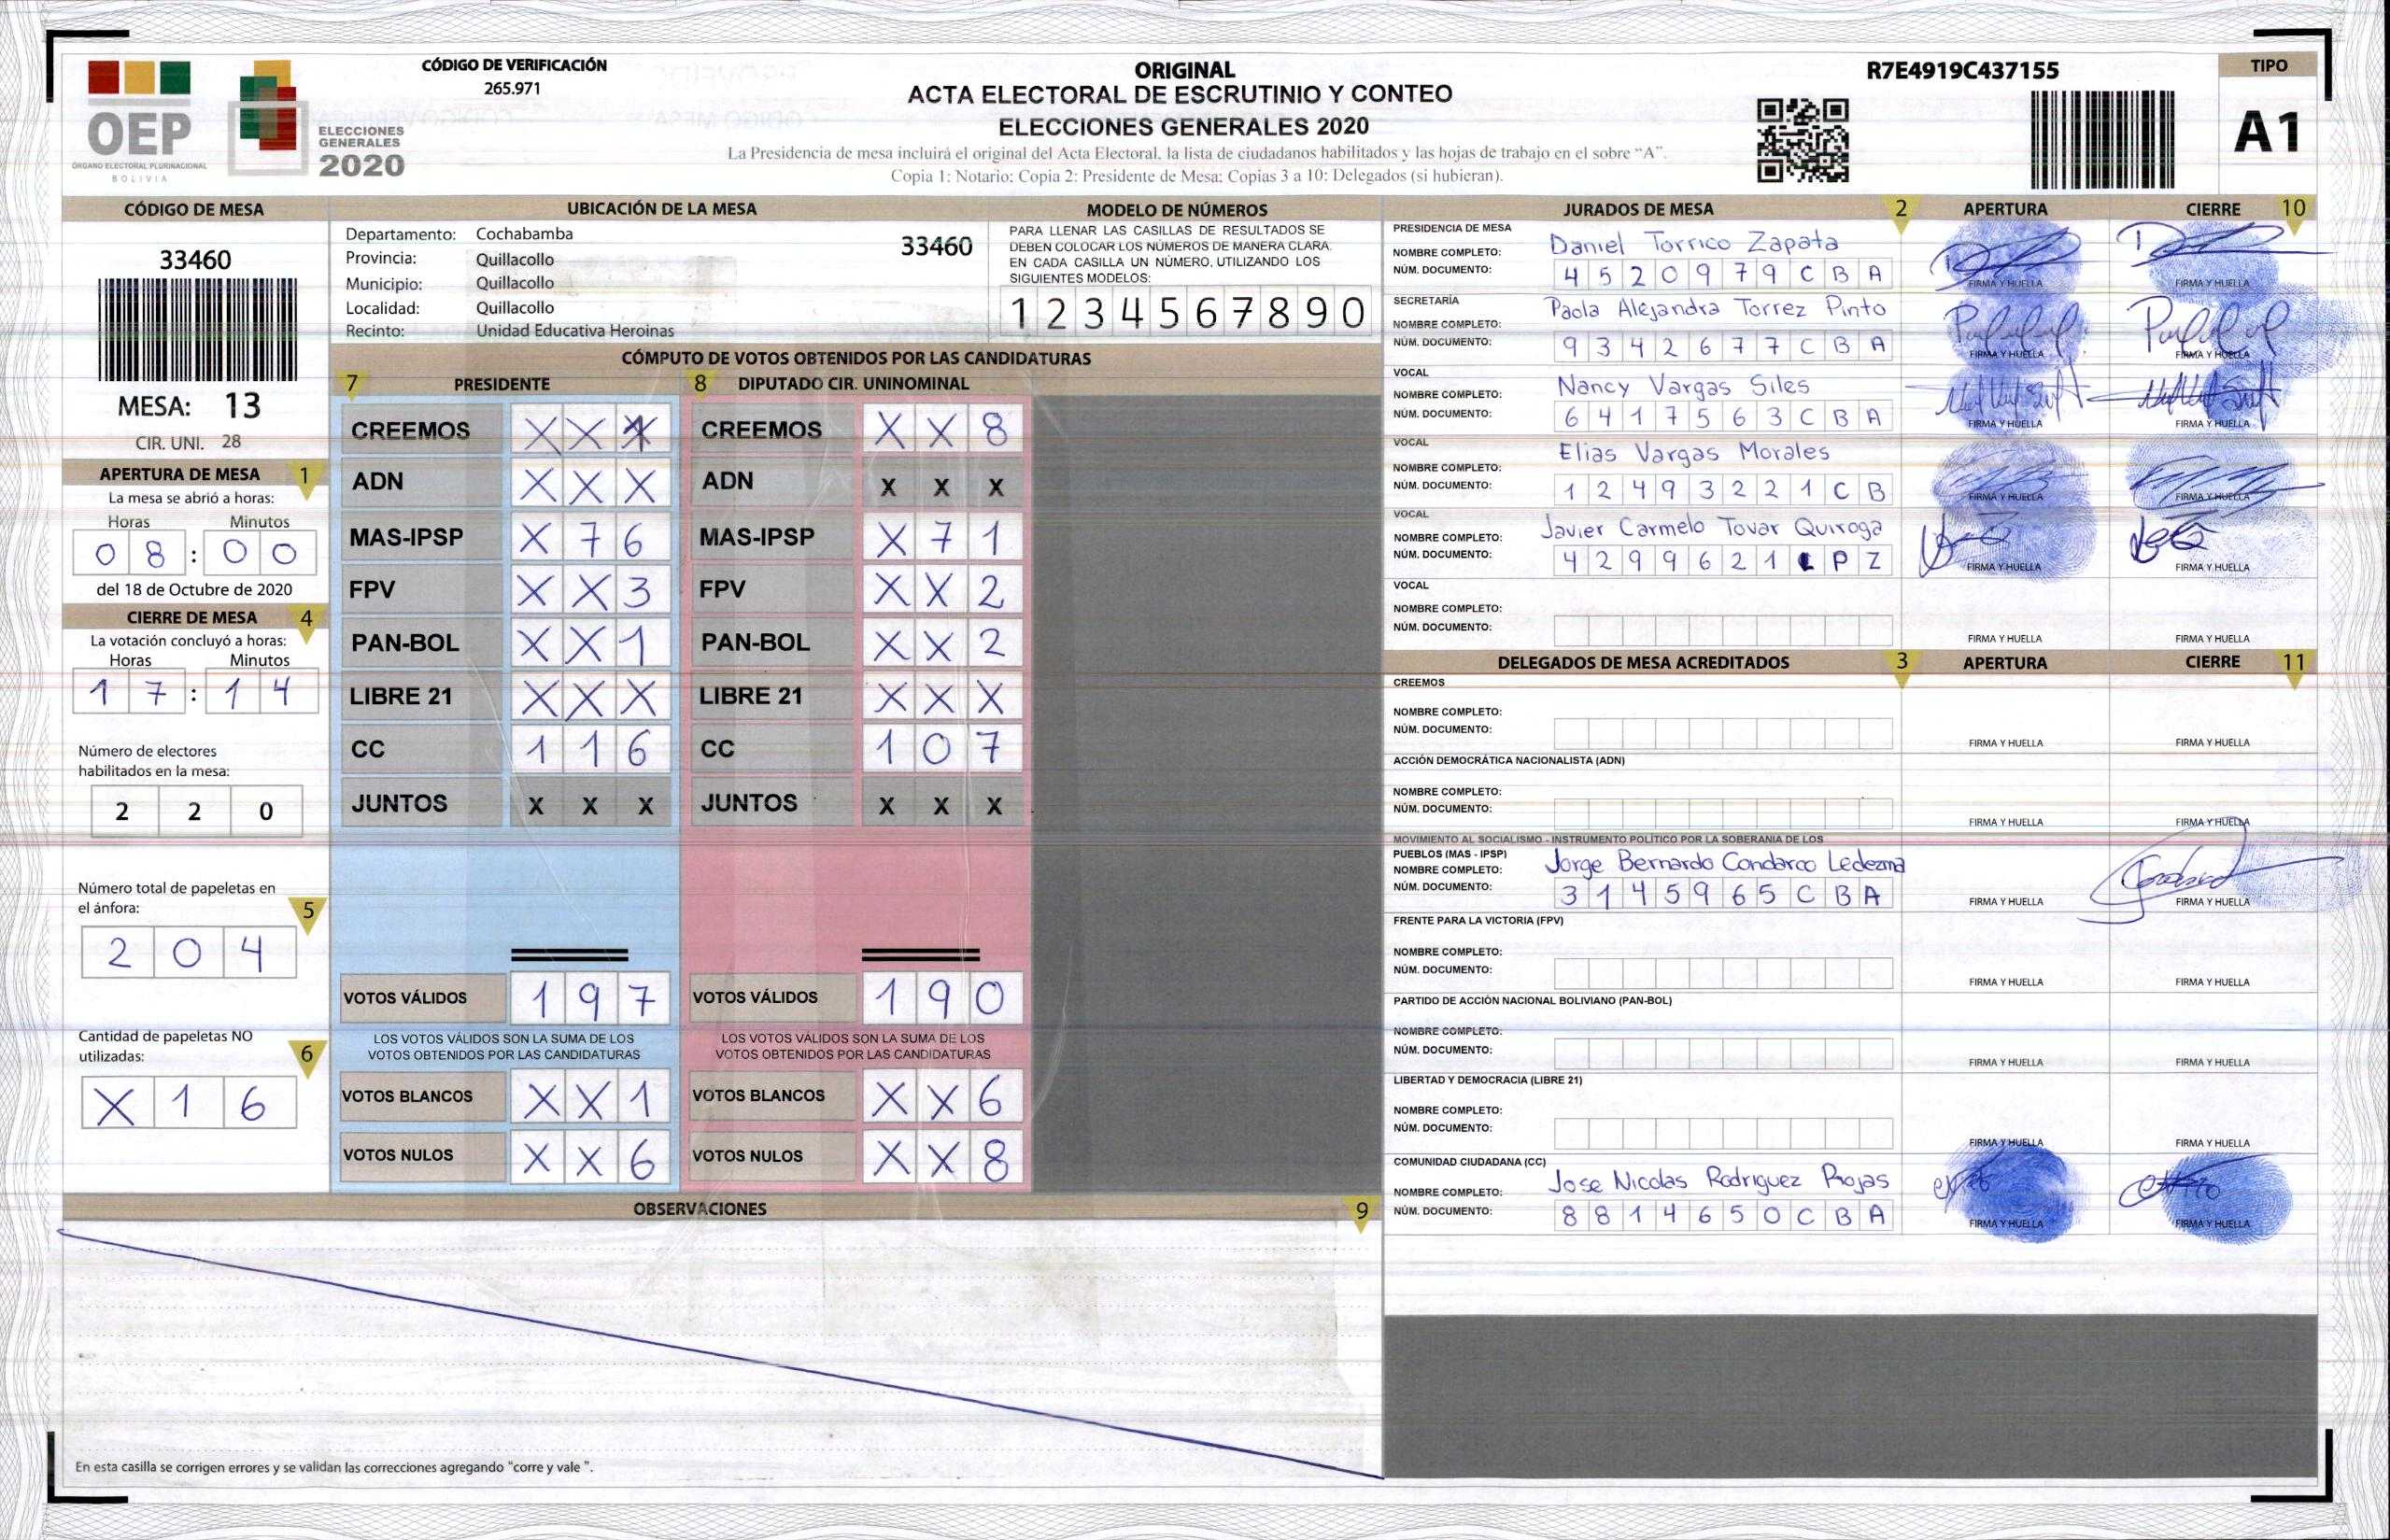 OEP
ÓRGANO ELECTORAL PLURINACIONAL
BOLIVIA
ELECCIONES
GENERALES
2020
CÓDIGO DE VERIFICACIÓN
265.971
ORIGINAL
ACTA ELECTORAL DE ESCRUTINIO Y CONTEO
ELECCIONES GENERALES 2020
La Presidencia de mesa incluirá el original del Acta Electoral, la lista de ciudadanos habilitados y las hojas de trabajo en el sobre “A”.
Copia 1: Notario; Copia 2: Presidente de Mesa; Copias 3 a 10: Delegados (si hubieran).
R7E4919C437155
TIPO
A1
CÓDIGO DE MESA
33460
MESA: 13
CIR. UNI. 28
APERTURA DE MESA 1
La mesa se abrió a horas:
Horas Minutos
0 8 : 0 0
del 18 de Octubre de 2020
CIERRE DE MESA 4
La votación concluyó a horas:
Horas Minutos
1 7 : 1 4
Número de electores
habilitados en la mesa:
2 2 0
Número total de papeletas en
el ánfora:
5
2 0 4
Cantidad de papeletas NO
utilizadas:
6
X 1 6
UBICACIÓN DE LA MESA
Departamento: Cochabamba
33460
Provincia: Quillacollo
Municipio: Quillacollo
Localidad: Quillacollo
Recinto: Unidad Educativa Heroinas
MODELO DE NÚMEROS
PARA LLENAR LAS CASILLAS DE RESULTADOS SE
DEBEN COLOCAR LOS NÚMEROS DE MANERA CLARA.
EN CADA CASILLA UN NÚMERO, UTILIZANDO LOS
SIGUIENTES MODELOS:
1 2 3 4 5 6 7 8 9 0
CÓMPUTO DE VOTOS OBTENIDOS POR LAS CANDIDATURAS
7 PRESIDENTE 8 DIPUTADO CIR. UNINOMINAL
CREEMOS X X 1 CREEMOS X X 8
ADN X X X ADN X X X
MAS-IPSP X 7 6 MAS-IPSP X 7 1
FPV X X 3 FPV X X 2
PAN-BOL X X 1 PAN-BOL X X 2
LIBRE 21 X X X LIBRE 21 X X X
CC 1 1 6 CC 1 0 7
JUNTOS X X X JUNTOS X X X
VOTOS VÁLIDOS 1 9 7 VOTOS VÁLIDOS 1 9 0
LOS VOTOS VÁLIDOS SON LA SUMA DE LOS LOS VOTOS VÁLIDOS SON LA SUMA DE LOS
VOTOS OBTENIDOS POR LAS CANDIDATURAS VOTOS OBTENIDOS POR LAS CANDIDATURAS
VOTOS BLANCOS X X 1 VOTOS BLANCOS X X 6
VOTOS NULOS X X 6 VOTOS NULOS X X 8
OBSERVACIONES 9
En esta casilla se corrigen errores y se validan las correcciones agregando “corre y vale ”.
JURADOS DE MESA 2 APERTURA CIERRE 10
PRESIDENCIA DE MESA
NOMBRE COMPLETO: Daniel Torrico Zapata
NÚM. DOCUMENTO: 4 5 2 0 9 7 9 C B A
FIRMA Y HUELLA FIRMA Y HUELLA
SECRETARÍA
NOMBRE COMPLETO: Paola Alejandra Torrez Pinto
NÚM. DOCUMENTO: 9 3 4 2 6 7 7 C B A
FIRMA Y HUELLA FIRMA Y HUELLA
VOCAL
NOMBRE COMPLETO: Nancy Vargas Siles
NÚM. DOCUMENTO: 6 4 1 7 5 6 3 C B A
FIRMA Y HUELLA FIRMA Y HUELLA
VOCAL
NOMBRE COMPLETO: Elias Vargas Morales
NÚM. DOCUMENTO: 1 2 4 9 3 2 2 1 C B
FIRMA Y HUELLA FIRMA Y HUELLA
VOCAL
NOMBRE COMPLETO: Javier Carmelo Tovar Quiroga
NÚM. DOCUMENTO: 4 2 9 9 6 2 1 L P Z
FIRMA Y HUELLA FIRMA Y HUELLA
VOCAL
NOMBRE COMPLETO:
NÚM. DOCUMENTO:
FIRMA Y HUELLA FIRMA Y HUELLA
DELEGADOS DE MESA ACREDITADOS 3 APERTURA CIERRE 11
CREEMOS
NOMBRE COMPLETO:
NÚM. DOCUMENTO:
FIRMA Y HUELLA FIRMA Y HUELLA
ACCIÓN DEMOCRÁTICA NACIONALISTA (ADN)
NOMBRE COMPLETO:
NÚM. DOCUMENTO:
FIRMA Y HUELLA FIRMA Y HUELLA
MOVIMIENTO AL SOCIALISMO - INSTRUMENTO POLÍTICO POR LA SOBERANIA DE LOS
PUEBLOS (MAS - IPSP)
NOMBRE COMPLETO: Jorge Bernardo Condarco Ledezma
NÚM. DOCUMENTO: 3 1 4 5 9 6 5 C B A
FIRMA Y HUELLA FIRMA Y HUELLA
FRENTE PARA LA VICTORIA (FPV)
NOMBRE COMPLETO:
NÚM. DOCUMENTO:
FIRMA Y HUELLA FIRMA Y HUELLA
PARTIDO DE ACCIÓN NACIONAL BOLIVIANO (PAN-BOL)
NOMBRE COMPLETO:
NÚM. DOCUMENTO:
FIRMA Y HUELLA FIRMA Y HUELLA
LIBERTAD Y DEMOCRACIA (LIBRE 21)
NOMBRE COMPLETO:
NÚM. DOCUMENTO:
FIRMA Y HUELLA FIRMA Y HUELLA
COMUNIDAD CIUDADANA (CC)
NOMBRE COMPLETO: Jose Nicolas Rodriguez Rojas
NÚM. DOCUMENTO: 8 8 1 4 6 5 0 C B A
FIRMA Y HUELLA FIRMA Y HUELLA